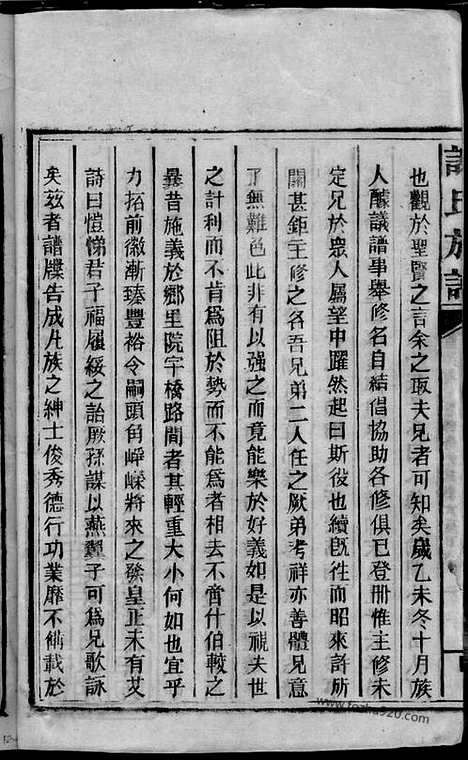 也觀於聖賢之言余之取夫兄者可知矣歲乙未冬十月族
人醵議譜事舉修名自結倡協助各修俱已登冊惟主修未
定兄於眾人屬望中躍然起曰斯役也續旣徃而昭來許所
關甚鉅主修之名吾兄弟二人任之厥弟考祥亦善體兄意
了無難色此非有以强之而竟能樂於好義如是以視夫世
之計利而不肯為阻於勢而不能為者相去不啻什伯較之
曩昔施義於鄉里院宇橋路間者其輕重大小何如也宜乎
力拓前徽漸臻豐裕令嗣頭角崢嶸將來之發皇正未有艾
詩曰愷悌君子福履綏之詒厥孫謀以燕翼子可為兄歌詠
矣茲者譜牒告成凡族之紳士俊秀德行功業靡不備載於
氏族譜
www.fozhu920.com